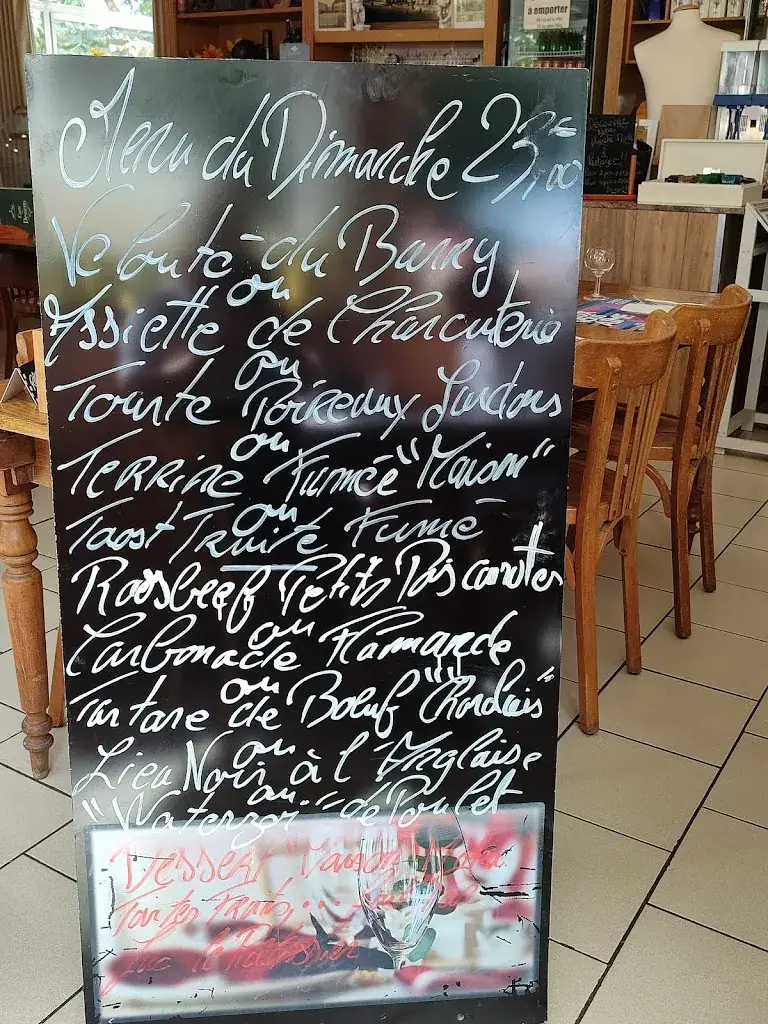 à emporter
Menu du Dimanche 23€,00
Velouté du Barry
ou
Assiette de Charcuterie
ou
Tourte Poireaux Lardons
ou
Terrine Fumée "Maison"
ou
Taost Truite Fumé
Roosbeef Petits Pois carottes
ou
Carbonade Flamande
ou
Tartare de Bœuf "Charolais"
ou
Lieu Noir à l'Anglaise
ou
"Waterzoi" de Poulet
Dessert Maison
Tartes Fruits,...